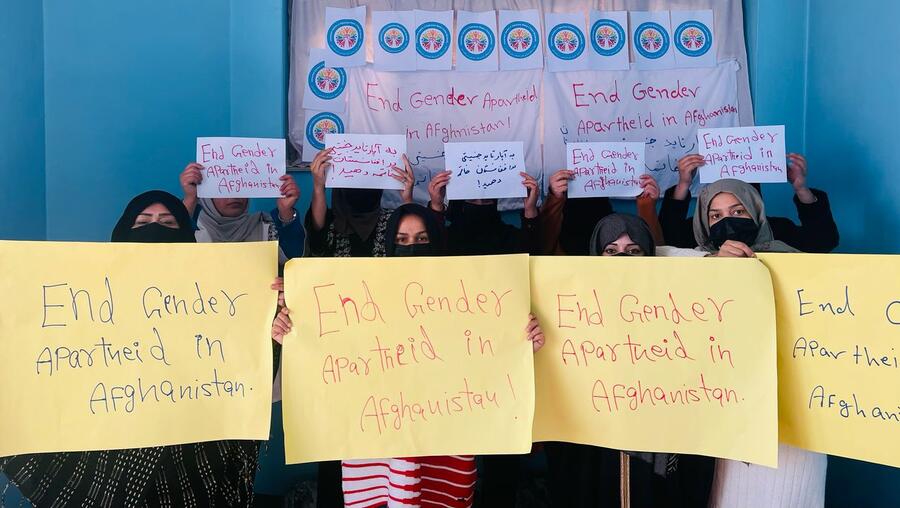 End Gender Apartheid
in Afghnistan!
End Gender
Apartheid in Afghanistan!
End Gender
Apartheid in
Afghanistan
به آپارتاید جنسیتی
در افغانستان
خاتمه دهید!
به آپارتاید جنسیتی
در افغانستان خاتمه
دهید!
End Gender
Apartheid in
Afghanistan
End Gender
Apartheid in
Afghanistan
End Gender
Apartheid in
Afghanistan.
End Gender
Apartheid in
Afghanistan!
End Gender
Apartheid in
Afghanistan.
End
Apartheid
Afghan